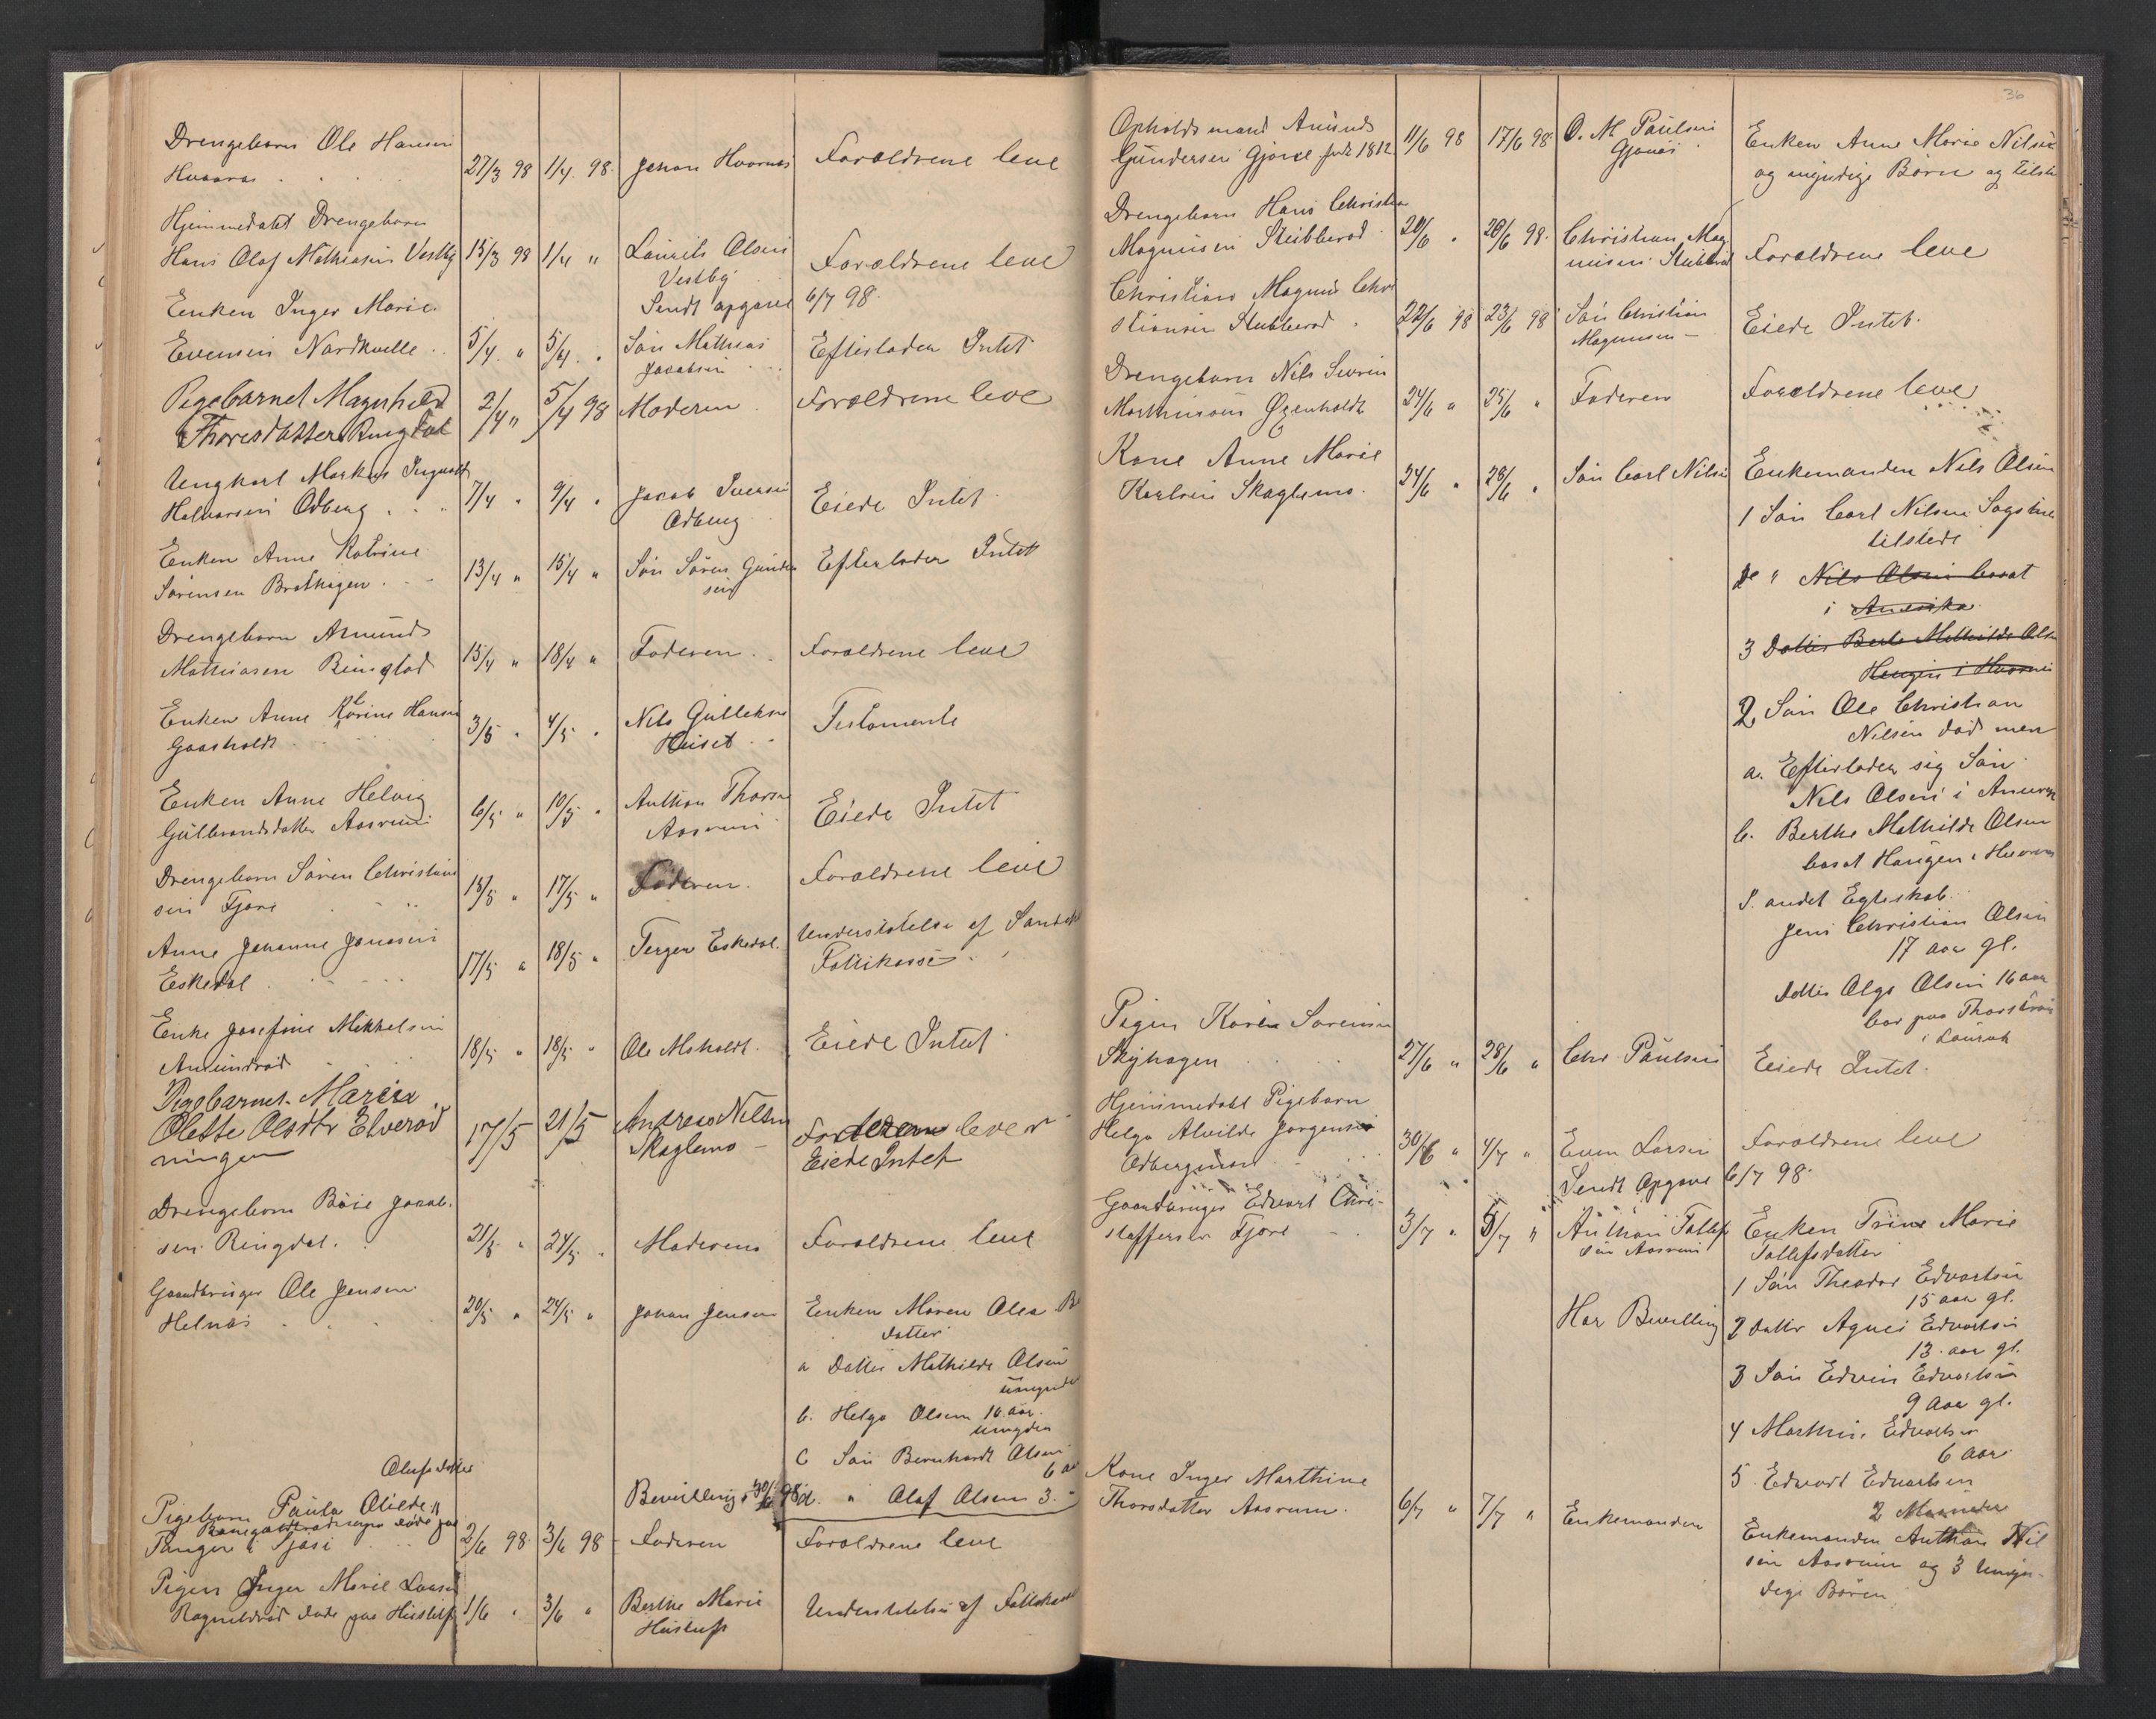 Drengebarn Ole Hansen
Hvaaras 27/3 98 1/4 98 Johan Hvarnes Forældrene leve
Hjemmedøbt Drengebarn
Hans Olaf Mathiasen Vestby 15/3 98 1/4 " Laurits Olsen Forældrene leve
Vestby
Sendt opgave 6/7 98
Enken Inger Marie
Evensen Nordkvelle 5/4 " 5/4 " Søn Mathias Efterlader Intet
Jacobsen
Pigebarnet Magnhild
Thoresdatter Ringdal 2/4 " 5/4 98 Moderen Forældrene leve
Ungkarl Markus Ingvald
Halvorsen Odberg 7/4 " 9/4 " Jacob Iversen Eiede Intet
Odberg
Enken Anne Katrine
Sørensen Brathagen 13/4 " 15/4 " Søn Søren Gunder Efterlader Intet
sen
Drengebarn Amund
Mathiasen Ringdal 15/4 " 18/4 " Faderen Forældrene leve
Enken Anne Karine Hansen
Gaasholt 3/5 " 4/5 " Nils Gulleksen Testamente
Huset
Enken Anne Helvig
Gulbrandsdatter Aasrum 6/5 " 10/5 " Anthon Thorsen Eiede Intet
Aasrum
Drengebarn Søren Christian
sen Fjære 15/5 " 17/5 " Faderen Forældrene leve
Anne Johanne Jonassen
Eskedal 17/5 " 18/5 " Terger Eskedal Understøtelse af
Fattikasse
Enke Josefine Mikkelsen
Amundrød 18/5 " 18/5 " Ole Moholdt Eiede Intet
Pigebarnet Marie
Olette Olsdtr Elverød
ningen 17/5 21/5 Andreas Nilsen lever
Skaglemo Eiede Intet
Drengebarn Jacob
sen Ringdal 21/5 " 24/5 " Moderen Forældrene leve
Gaardbruger Ole Jensen
Helnæs 20/5 " 24/5 " Johan Jensen Enken Maren Olea
datter
a Datter Mathilde Olsen
b. Helga Olsen 16 aar
c Søn Bernhardt Olsen
6 aar
Bevilling 98 d. " Olaf Olsen 3.
Olufsdatter
Pigebarn Paula Otilde
2/6 98 3/6 98 Faderen Forældrene leve
Pigen Inger Marie Larsen
døde paa Hustuft 1/6 " 3/6 " Berthe Marie Understøttelse af
Hustuft
36
Opholdsmand Amund
Gundersen Gjone født 1812 11/6 98 17/6 98 O. M Paulsen Enken Anne Marie Nilsen
Gjønnes og myndige Børn og
Drengebarn Hans Christian
Magnussen Stubberød 20/6 " 20/6 98 Christian Mag Forældrene leve
nusen Stubberød
Christian Magnus Chri
stiansen Stubberød 22/6 98 23/6 98 Søn Christian Eiede Intet
Magnussen
Drengebarn Nils Severin
Marthinsen Øgenholdt 24/6 " 25/6 " Faderen Forældrene leve
Kone Anne Marie
Karlsen Skaglemo 24/6 " 28/6 " Søn Carl Nilsen Enkemanden Nils Olsen
1 Søn Carl Nilsen
tilstede
2 " Nils Olsen bosat
i Amerika
3 Datter Berte Mathilde Olsen
Haugen i Hvarnes
2 Søn Ole Christian
Nilsen død men
a. Efterlader sig Søn
Nils Olsen i Amerika
b. Berthe Mathilde Olsen
bosat Haugen i Hvarnes
I andet Egteskab
Jens Christian Olsen
17 aar gl.
Datter Olga Olsen 16 aar
bor paa Thorstrøn
i Laurvik
Pigen Karen Sørensen
Skyhagen 27/6 " 28/6 " Chr Paulsen Eiede Intet
Hjemmedøbt Pigebarn
Helga Alvilde Jørgensen
Odbergmoen 30/6 " 4/7 " Even Larsen Forældrene leve
Sendt Opgave 6/7 98
Gaardbruger Edvart Chri-
stoffersen Fjære 3/7 " 5/7 " Anthon Tollef Enken Trine Marie
sen Aasrum Tollefsdatter
1 Søn Theodor Edvartsen
15 aar gl.
Har Bevilling 2 Datter Agnes Edvartsen
13 aar gl.
3 Søn Edvin Edvartsen
9 aar gl.
4 Marthin Edvartsen
6 aar
5 Edvart Edvartsen
2 Maaneder
Kone Inger Marthine
Thorsdatter Aasrum 6/7 " 7/7 " Enkemanden Enkemanden Anthon Nil
sen Aasrum og 3 Umyn-
dige Børn